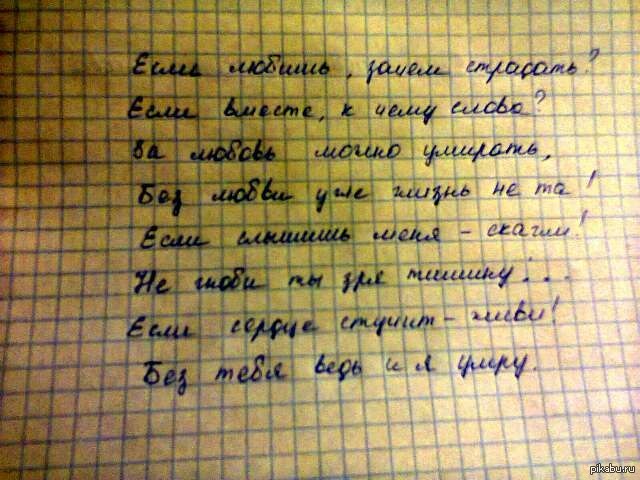 Если любишь, зачем страдать?
Если вместе, к чему слова?
За любовь можно умирать,
Без любви уже жизнь не та!
Если слышишь меня - скажи!
Не гноби ты зря тишину...
Если сердце стучит - живи!
Без тебя ведь и я умру.
pikabu.ru